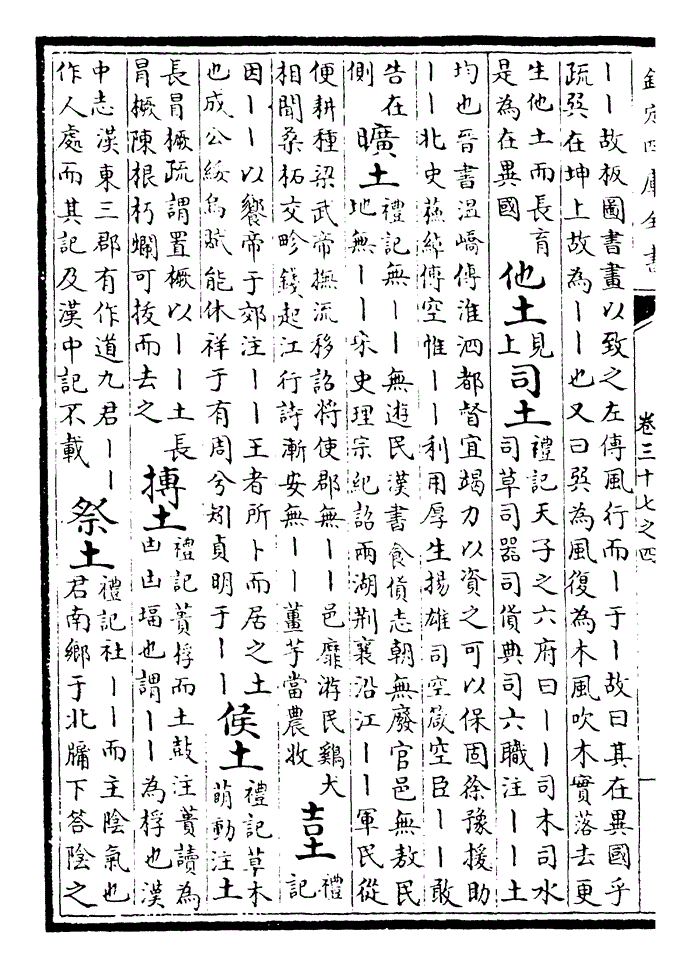 欽定四庫全書
卷三十七之四
丨丨故板圖書畫以致之左傳風行而丨于丨故曰其在異國乎
疏巽在坤上故為丨丨也又曰巽為風復為木風吹木實落去更
生他土而長育
是為在異國
他土
見
上
司土
禮記天子之六府曰丨丨司木司水
司草司器司貨典司六職注丨丨土
均也晉書溫嶠傳淮泗都督宜竭力以資之可以保固徐豫援助
丨丨北史蘇綽傳空惟丨丨利用厚生揚雄司空箴空臣丨丨敢
告在
側
曠土
禮記無丨丨無遊民漢書食貨志朝無廢官邑無敖民
地無丨丨宋史理宗紀詔兩湖荆襄沿江丨丨軍民從
便耕種梁武帝撫流移詔將使郡無丨丨邑靡游民雞犬
相聞桑柘交畛錢起江行詩漸安無丨丨薑芋當農收
吉土
禮
記
因丨丨以饗帝于郊注丨丨王者所卜而居之土
也成公綏烏賦能休祥于有周兮矧貞明于丨丨
候土
禮記草木
萌動注土
長冒橛疏謂置橛以丨丨土長
冒橛陳根朽爛可拔而去之
摶土
禮記蕢桴而土鼔注蕢讀為
凷凷堛也謂丨丨為桴也漢
中志漢東三郡有作道九君丨丨
作人處而其記及漢中記不載
祭土
禮記社丨丨而主陰氣也
君南鄉于北牖下答陰之